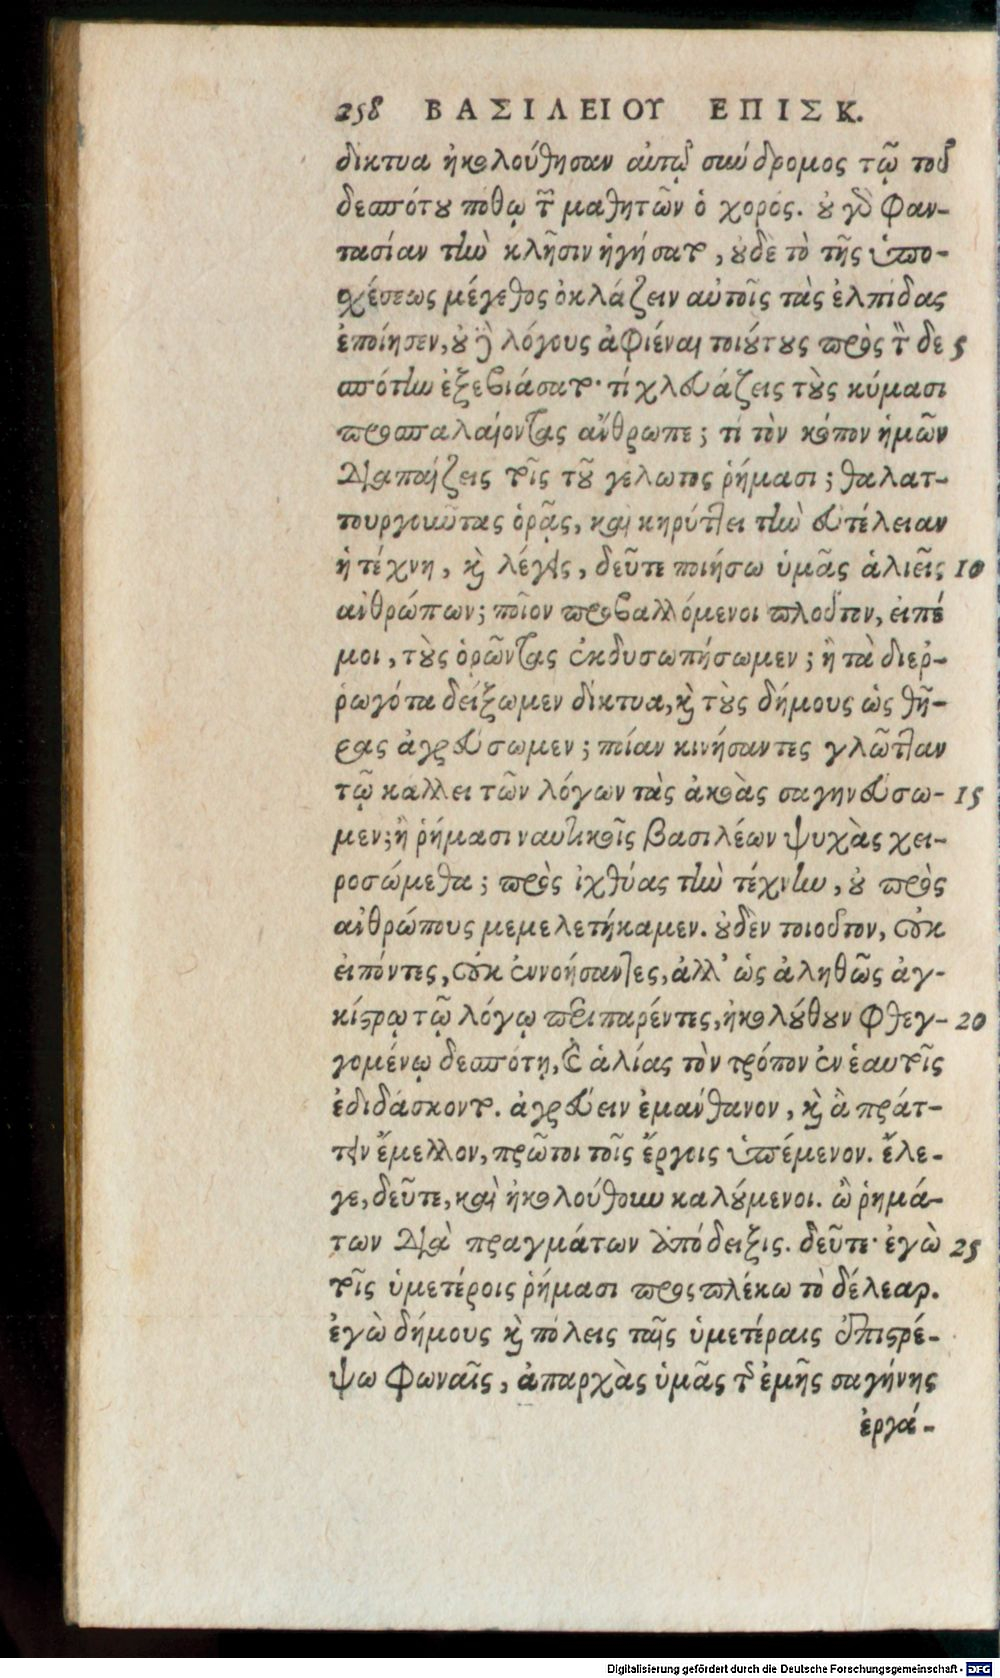 258 ΒΑΣΙΛΕΙΟΥ ΕΠΙΣΚ.
δίκτυα ἠκολούθησαν αὐτῷ σύνδρομος τῷ τοῦ
δεσπότου πόθῳ τῶν μαθητῶν ὁ χορός. οὐ γὰρ φαν-
τασίαν τὴν κλῆσιν ἡγήσατο, οὐδὲ τὸ τῆς ὑπο-
χέσεως μέγεθος ὀκλάζειν αὐτοῖς τὰς ἐλπίδας
ἐποίησεν, οὐδὲ λόγους ἀφιέναι τοιούτους πρὸς τὸν δε 5
σπότην ἐξεβιάσατο· τί χλευάζεις τοὺς κύμασι
προσπαλαίοντας ἄνθρωπε; τί τὸν κόπον ἡμῶν
διαπαίζεις τοῖς τοῦ γέλωτος ῥήμασι; θαλατ-
τουργοῦντας ὁρᾷς, καὶ κηρύττει τὴν εὐτέλειαν
ἡ τέχνη, καὶ λέγεις, δεῦτε ποιήσω ὑμᾶς ἁλιεῖς 10
ἀνθρώπων; ποῖον προβαλλόμενοι πλοῦτον, εἰπέ
μοι, τοὺς ὁρῶντας ἐκδυσωπήσωμεν; ἢ τὰ διερ-
ρωγότα δείξωμεν δίκτυα, καὶ τοὺς δήμους ὡς θῆ-
ρας ἀγρεύσωμεν; ποίαν κινήσαντες γλῶτταν
τῷ κάλλει τῶν λόγων τὰς ἀκοὰς σαγηνεύσω- 15
μεν; ἢ ῥήμασι ναυτικοῖς βασιλέων ψυχὰς χει-
ροσώμεθα; πρὸς ἰχθύας τὴν τέχνην, οὐ πρὸς
ἀνθρώπους μεμελετήκαμεν. οὐδὲν τοιοῦτον, οὐκ
εἰπόντες, οὐκ ἐννοήσαντες, ἀλλ' ὡς ἀληθῶς ἀγ-
κίστρῳ τῷ λόγῳ περιπαρέντες, ἠκολούθουν φθεγ- 20
γομένῳ δεσπότῃ, καὶ ἁλίας τὸν τρόπον ἐν ἑαυτοῖς
ἐδιδάσκοντο. ἀγρεύειν ἐμάνθανον, καὶ ἃ πράτ-
τειν ἔμελλον, πρῶτοι τοῖς ἔργοις ὑπέμενον. ἔλε-
γε, δεῦτε, καὶ ἠκολούθουν καλούμενοι. ὢ ῥημά-
των διὰ πραγμάτων ἀπόδειξις. δεῦτε· ἐγὼ 25
τοῖς ὑμετέροις ῥήμασι προσπλέκω τὸ δέλεαρ.
ἐγὼ δήμους καὶ πόλεις ταῖς ὑμετέραις ἐπιστρέ-
ψω φωναῖς, ἀπαρχὰς ὑμᾶς τῆς ἐμῆς σαγήνης
ἐργά-
Digitalisierung gefördert durch die Deutsche Forschungsgemeinschaft - DFG